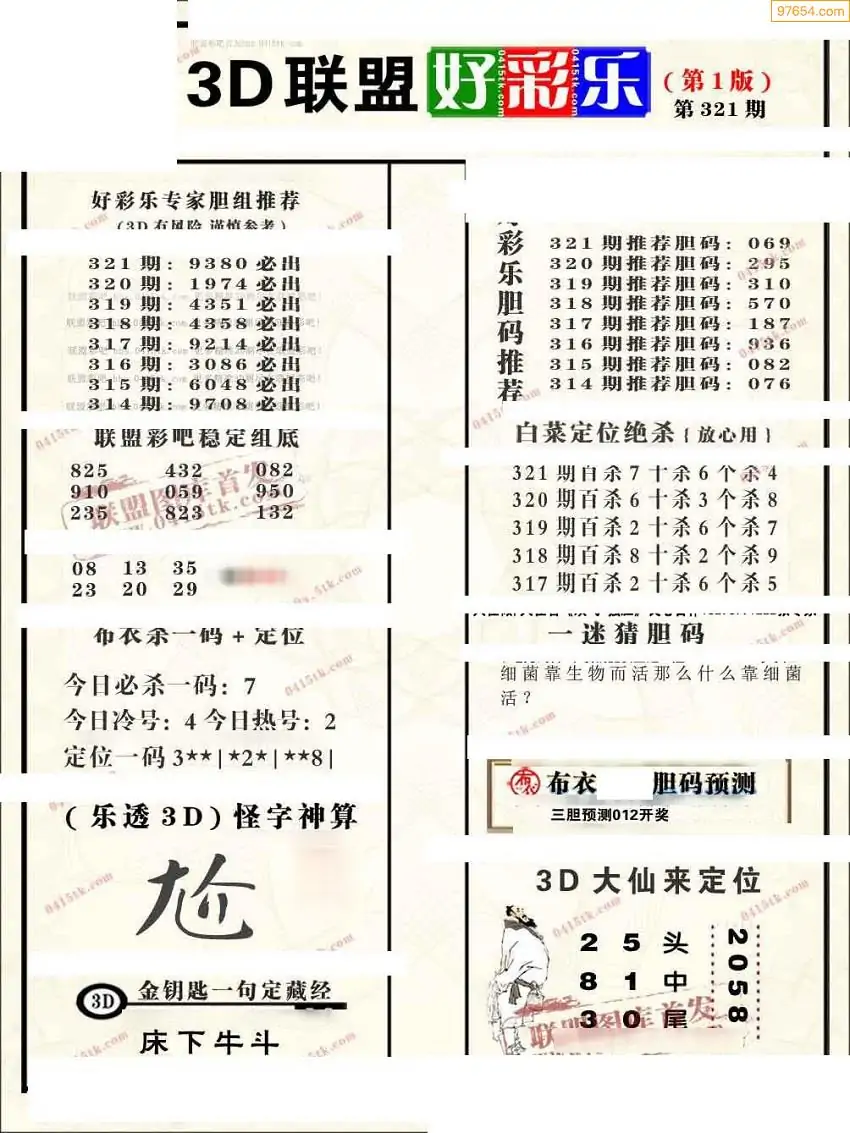 97654.com
3D联盟好彩乐
(第1版)
第321期
好彩乐专家胆组推荐
(3D有风险 谨慎参考)
321期：9380必出
320期：1974必出
319期：4351必出
318期：4358必出
317期：9214必出
316期：3086必出
315期：6048必出
314期：9708必出
联盟彩吧稳定组底
825 432 082
910 059 950
235 823 132
联盟图库首发
08 13 35
23 20 29
布衣杀一码+定位
今日必杀一码：7
今日冷号：4今日热号：2
定位一码3**|*2*|**8|
(乐透3D)怪字神算
尬
3D 金钥匙一句定藏经
床下牛斗
彩乐胆码推荐
321期推荐胆码：069
320期推荐胆码：295
319期推荐胆码：310
318期推荐胆码：570
317期推荐胆码：187
316期推荐胆码：936
315期推荐胆码：082
314期推荐胆码：076
白菜定位绝杀{放心用}
321期百杀7十杀6个杀4
320期百杀6十杀3个杀8
319期百杀2十杀6个杀7
318期百杀8十杀2个杀9
317期百杀2十杀6个杀5
一迷猜胆码
细菌靠生物而活那么什么靠细菌
活？
布衣 布衣 胆码预测
三胆预测012开奖
3D大仙来定位
2 5 头
8 1 中
3 0 尾
2058
联盟图库首发
0415tk.com